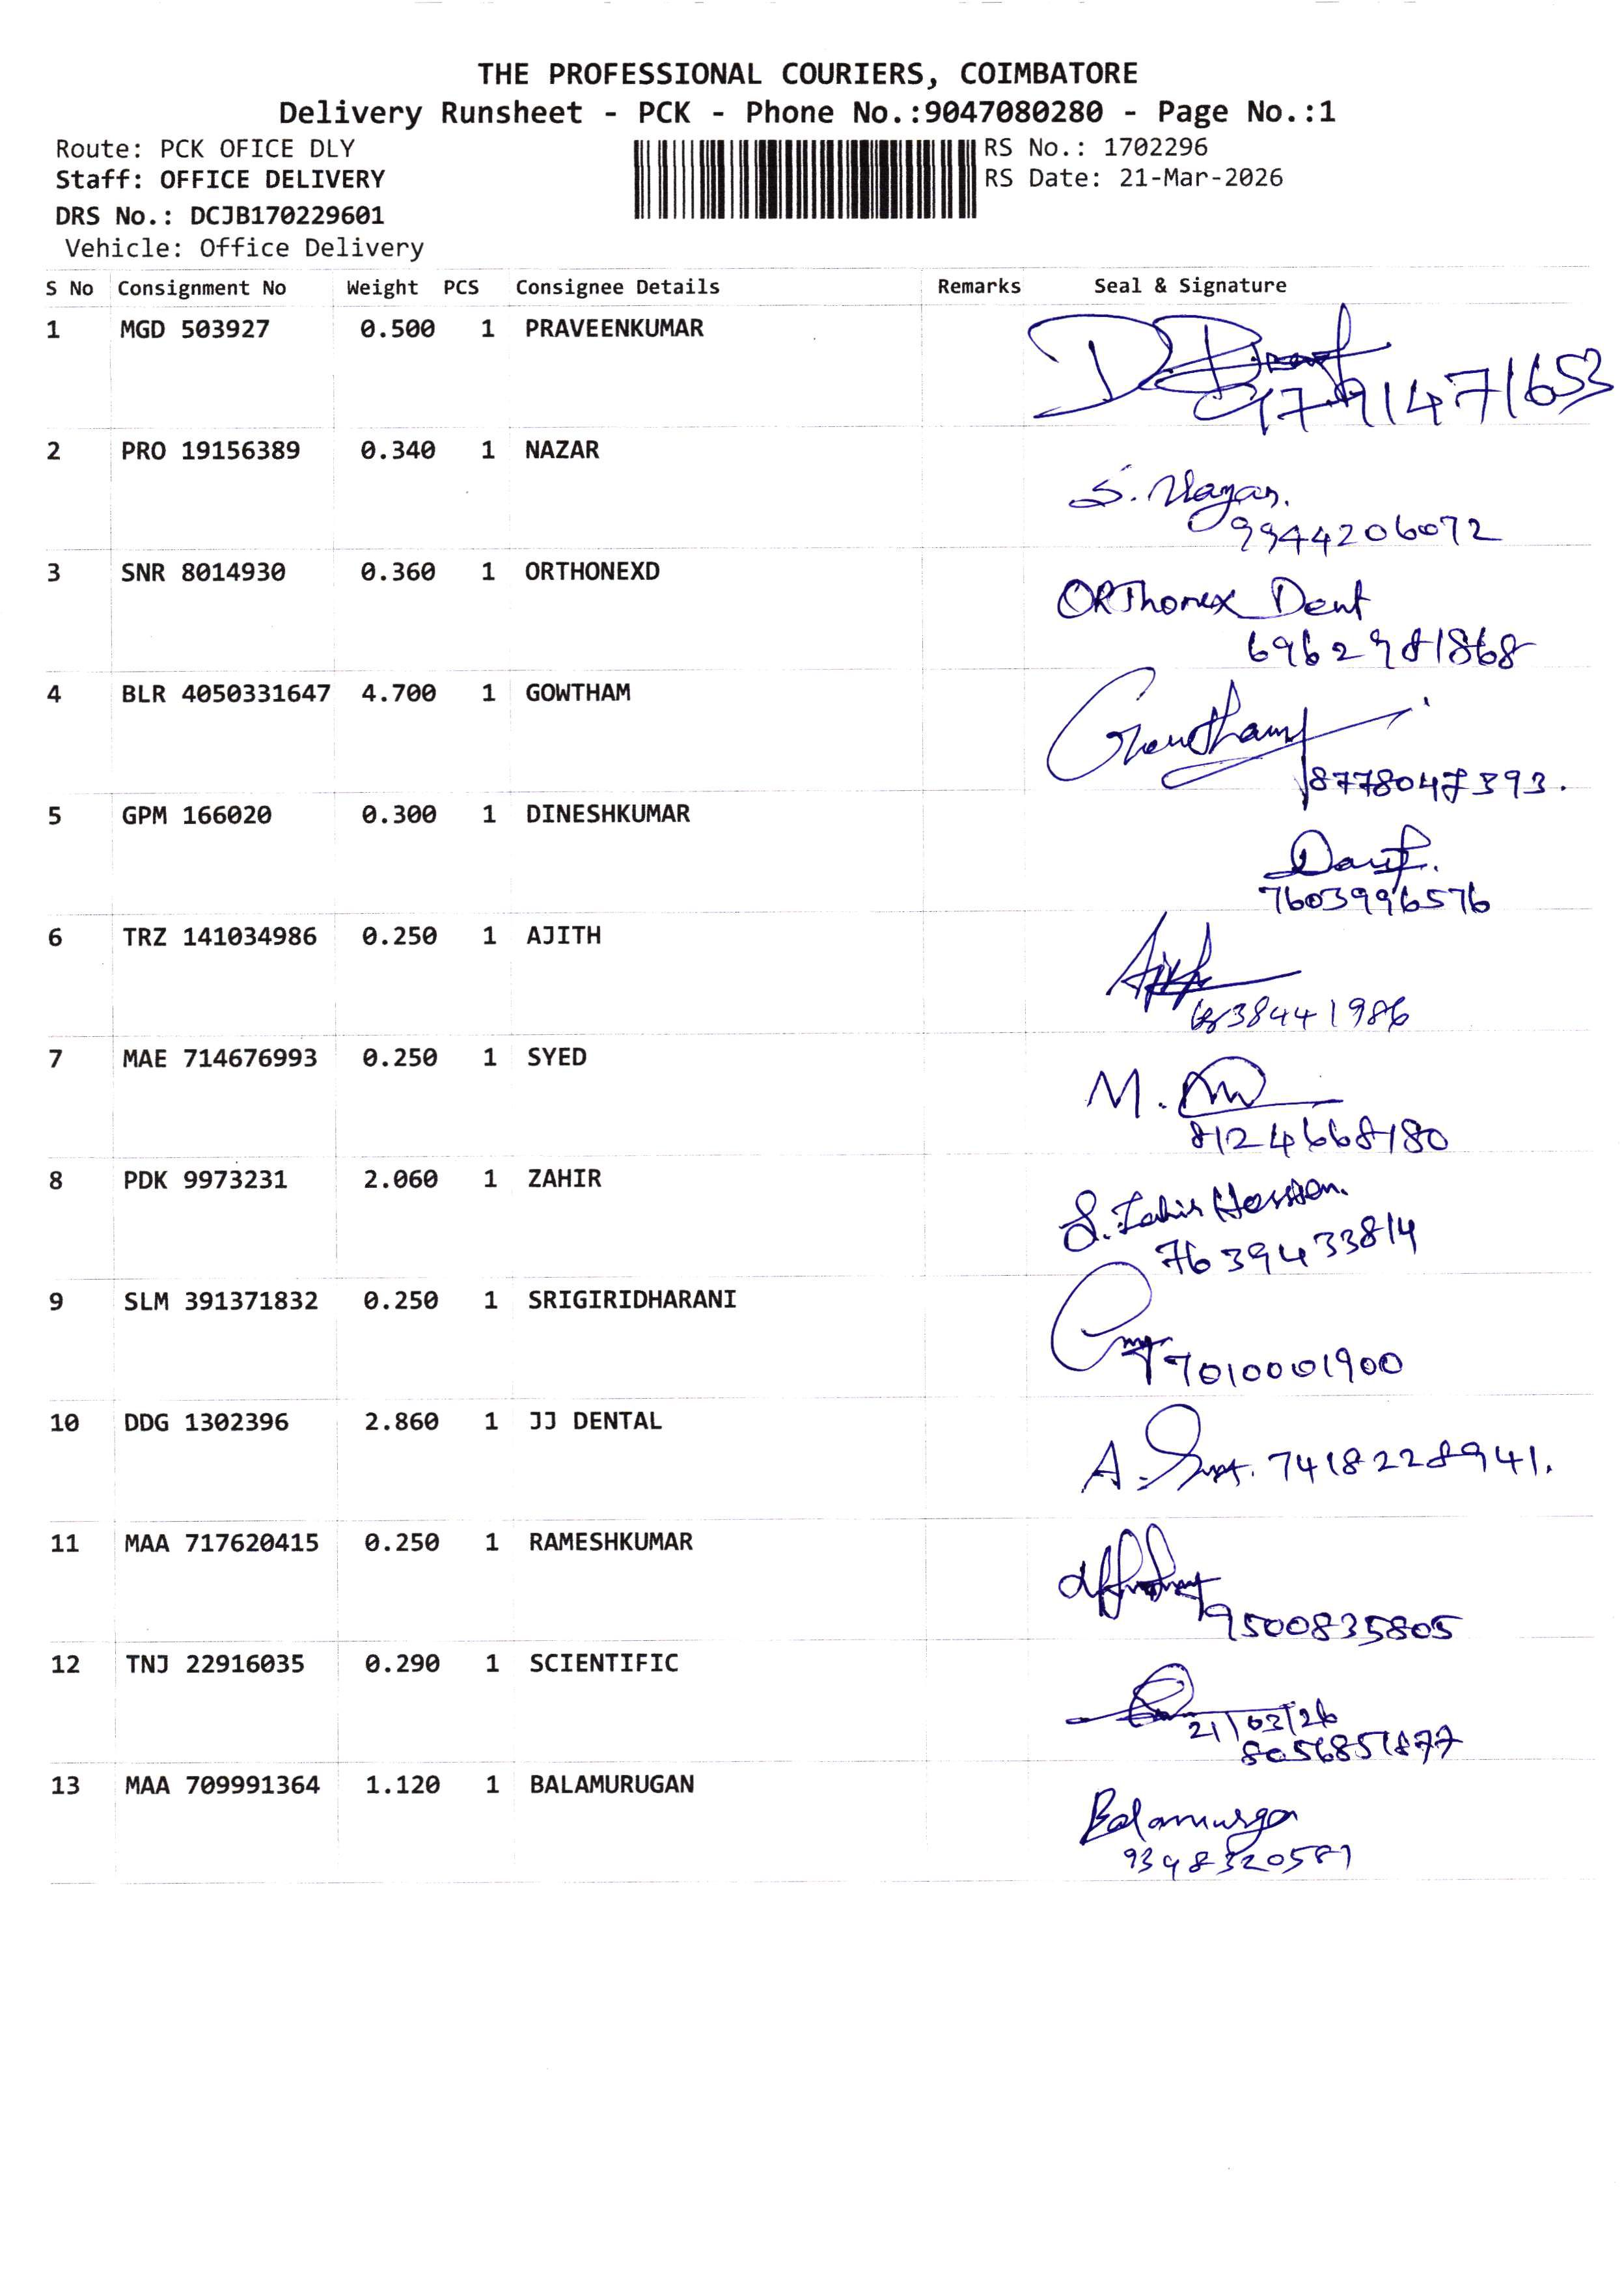 THE PROFESSIONAL COURIERS, COIMBATORE
Delivery Runsheet - PCK - Phone No.:9047080280 - Page No.:1
Route: PCK OFICE DLY
RS No.: 1702296
Staff: OFFICE DELIVERY
RS Date: 21-Mar-2026
DRS No.: DCJB170229601
Vehicle: Office Delivery
S No Consignment No Weight PCS Consignee Details Remarks Seal & Signature
1 MGD 503927 0.500 1 PRAVEENKUMAR
2 PRO 19156389 0.340 1 NAZAR
9944206072
3 SNR 8014930 0.360 1 ORTHONEXD
ORThonex Dent
6962981868
4 BLR 4050331647 4.700 1 GOWTHAM
Gowtham
8778047393.
5 GPM 166020 0.300 1 DINESHKUMAR
7603996576
6 TRZ 141034986 0.250 1 AJITH
38441986
7 MAE 714676993 0.250 1 SYED
M.
8124668180
8 PDK 9973231 2.060 1 ZAHIR
S. Zahir Hossen.
7639433814
9 SLM 391371832 0.250 1 SRIGIRIDHARANI
7010001900
10 DDG 1302396 2.860 1 JJ DENTAL
A. 7418228941.
11 MAA 717620415 0.250 1 RAMESHKUMAR
9500835805
12 TNJ 22916035 0.290 1 SCIENTIFIC
21/03/26
8056851877
13 MAA 709991364 1.120 1 BALAMURUGAN
Balamurga
9398320581